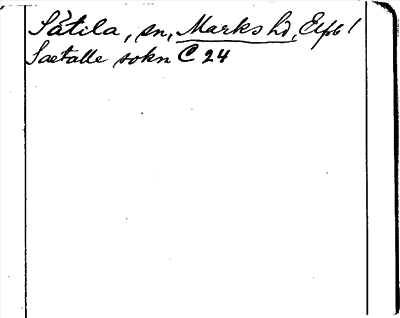 Sätila, sn, Marks hd, Elfsb l
Saetalle sokn C 24